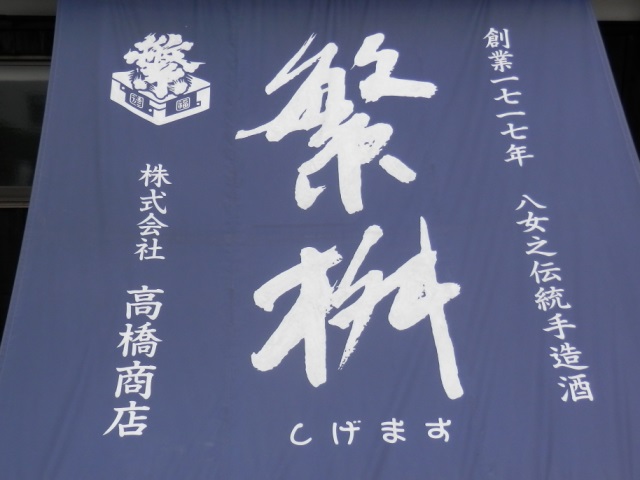 創業一七一七年 八女之伝統手造酒
繁桝
しげます
繁
株式会社 高橋商店